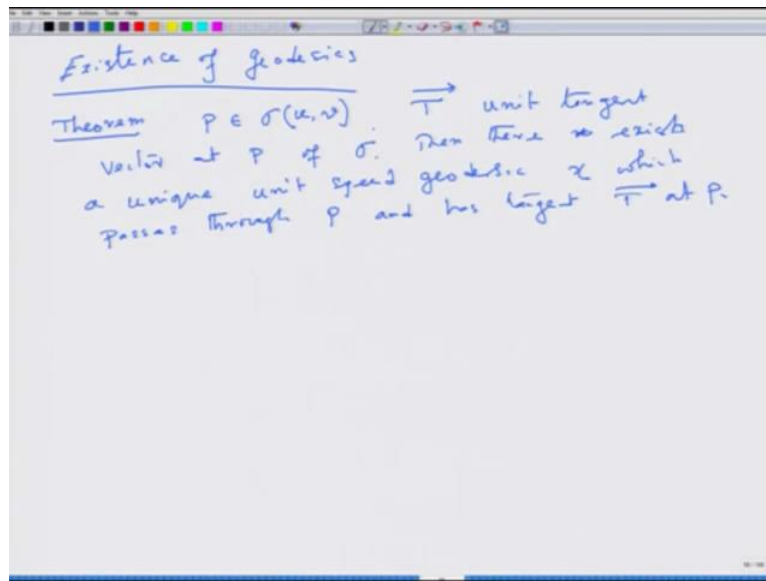 Existence of geodesics
Theorem P ∈ σ(u,v) T unit tangent
vector at P of σ. Then there exists
a unique unit speed geodesic x which
passes through P and has tangent T at P.